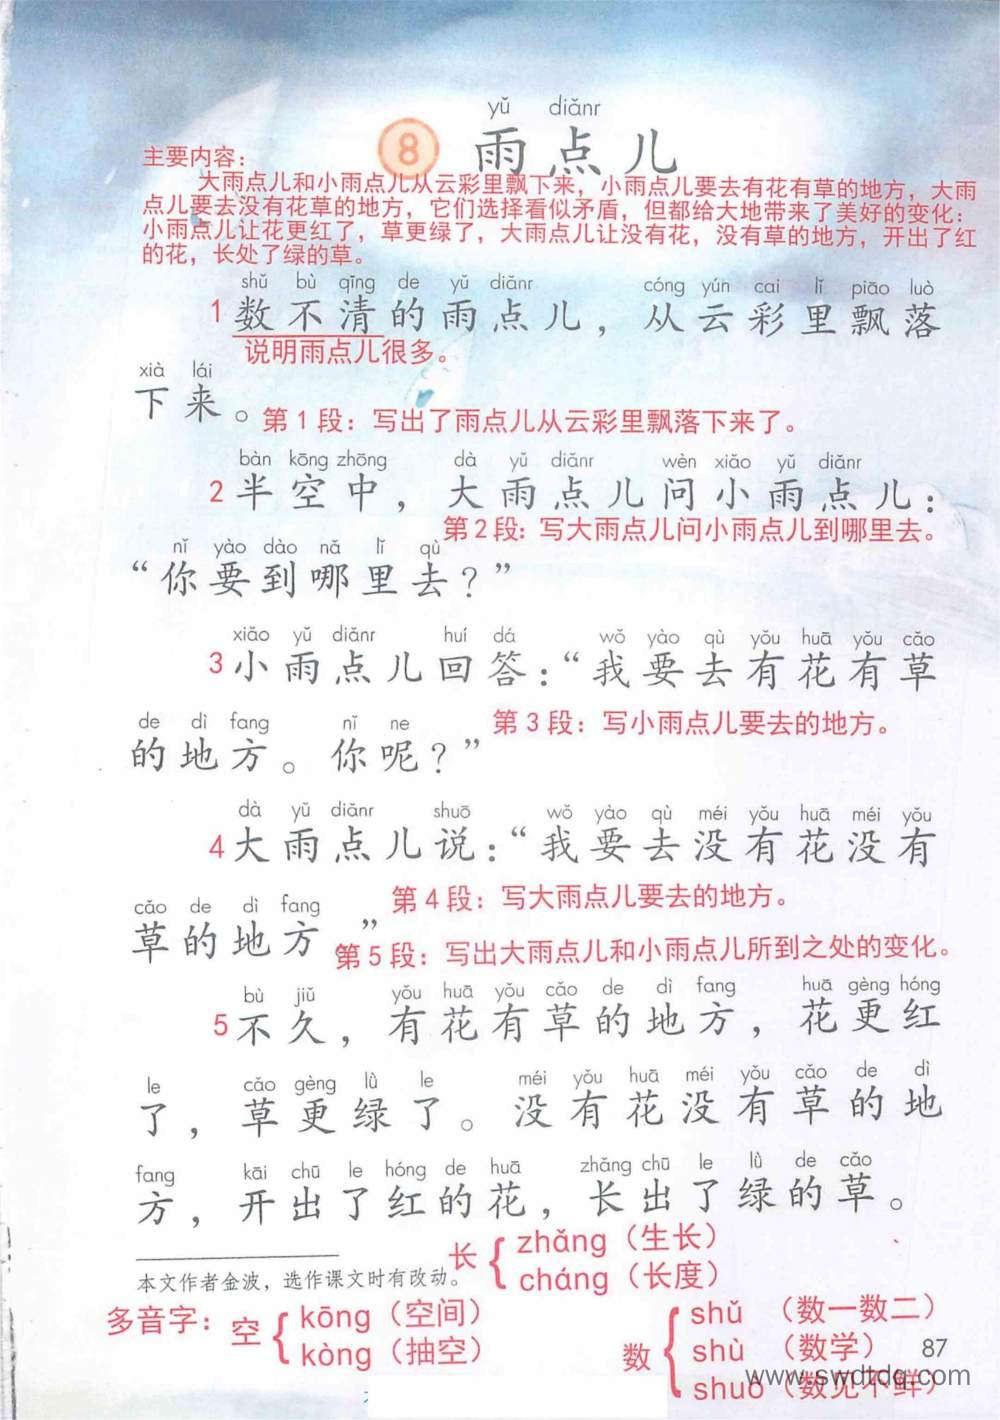 yǔ diǎnr
8 雨点儿
主要内容：
大雨点儿和小雨点儿从云彩里飘下来，小雨点儿要去有花有草的地方，大雨
点儿要去没有花草的地方，它们选择看似矛盾，但都给大地带来了美好的变化：
小雨点儿让花更红了，草更绿了，大雨点儿让没有花，没有草的地方，开出了红
的花，长处了绿的草。
shǔ bù qīng de yǔ diǎnr cóng yún cai lǐ piāo luò
1 数不清的雨点儿，从云彩里飘落
说明雨点儿很多。
xià lái
下来。
第1段：写出了雨点儿从云彩里飘落下来了。
bàn kōng zhōng dà yǔ diǎnr wèn xiǎo yǔ diǎnr
2 半空中，大雨点儿问小雨点儿：
第2段：写大雨点儿问小雨点儿到哪里去。
nǐ yào dào nǎ lǐ qù
“你要到哪里去？”
xiǎo yǔ diǎnr huí dá wǒ yào qù yǒu huā yǒu cǎo
3 小雨点儿回答：“我要去有花有草
de dì fang nǐ ne
的地方。你呢？”
第3段：写小雨点儿要去的地方。
dà yǔ diǎnr shuō wǒ yào qù méi yǒu huā méi yǒu
4 大雨点儿说：“我要去没有花没有
第4段：写大雨点儿要去的地方。
cǎo de dì fang
草的地方。”
第5段：写出大雨点儿和小雨点儿所到之处的变化。
bù jiǔ yǒu huā yǒu cǎo de dì fang huā gèng hóng
5 不久，有花有草的地方，花更红
le cǎo gèng lǜ le méi yǒu huā méi yǒu cǎo de dì
了，草更绿了。没有花没有草的地
fang kāi chū le hóng de huā zhǎng chū le lǜ de cǎo
方，开出了红的花，长出了绿的草。
长 { zhǎng（生长）
cháng（长度）
本文作者金波，选作课文时有改动。
多音字：空 { kōng（空间）
kòng（抽空）
数 { shǔ （数一数二）
shù （数学）
shuò（数见不鲜）
87
www.swdtdq.com